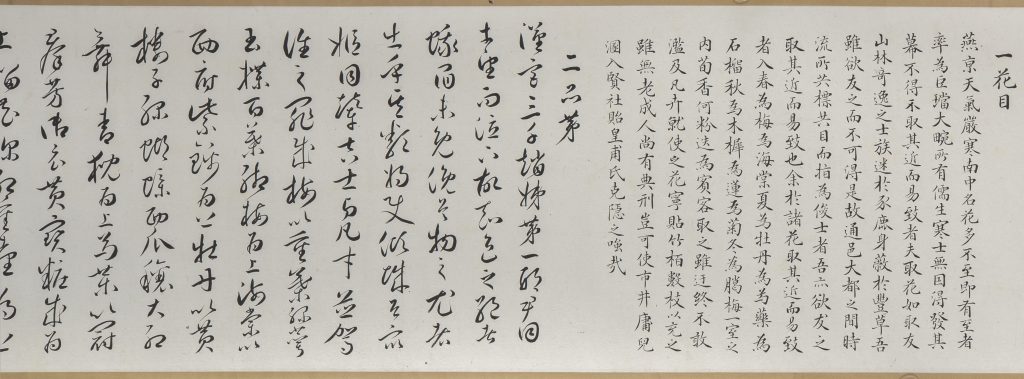 一花目
燕京天氣嚴寒南中名花多不至即有至者
率為巨璫大畹所有儒生寒士無因得發其
幕不得不取其近而易致者夫取花如取友
山林奇逸之士族迷於豕鹿身蔽於豐草吾
雖欲友之而不可得是故通邑大都之間時
流所共標共目而指為俊士者吾亦欲友之
取其近而易致也余於諸花取其近而易致
者入春為梅為海棠夏為牡丹為芍藥為
石榴秋為木樨為蓮為菊冬為臘梅一室之
內荀香何粉迭為賓客取之雖終不敢
濫及凡卉就使乏花寧貯竹柏數枝以充之
雖無老成人尚有典刑豈可使市井庸兒
溷入賢社貽皇甫氏充隱之嗤哉
二品第
漢宮三千趙姊第一邢尹同
幸望而泣下故知色之絕者
蛾眉未免俛首物之尤者
出乎其類將使傾城與眾
姬同輦吉士與凡才並駕
誰之罪哉梅以重葉綠萼
玉蝶百葉緗梅為上海棠以
西府紫錦為上牡丹以黃
樓子綠蝴蝶西瓜瓤大紅
舞青猊為上芍藥以冠
群芳御衣黃寶妝成為
上榴花深紅重臺為上